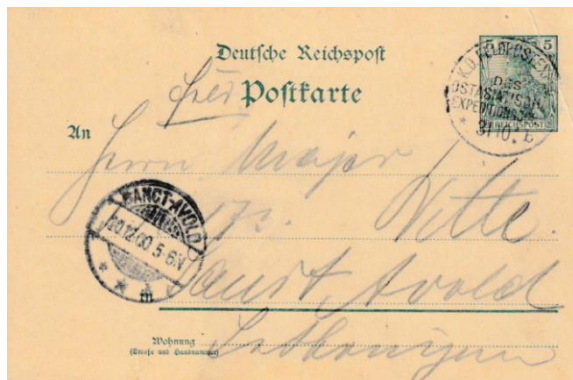 Deutsche Reichspost
Postkarte
5 5
K.D. FELDPOSTEXP.
DES
OSTASIATISCH.
EXPEDITIONSC.
REICHSPOST
31 10. b
An
Herrn Major
Witte
SANCT-AVOLD
20.12.00.5-6N
m
Sanct Avold
Wohnung
(Straße und Hausnummer)
Lothringen